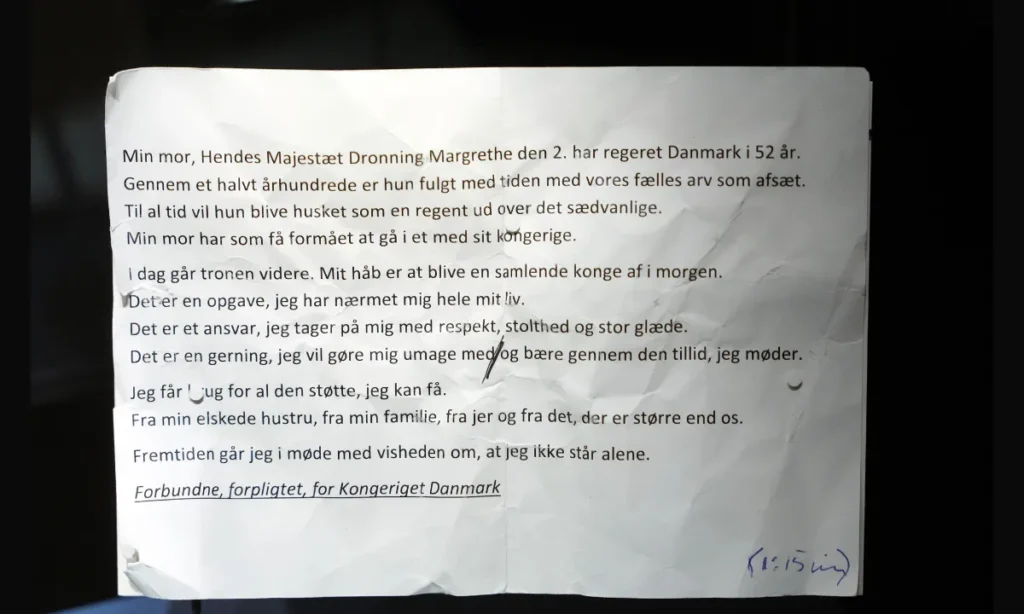 Min mor, Hendes Majestæt Dronning Margrethe den 2. har regeret Danmark i 52 år.
Gennem et halvt århundrede er hun fulgt med tiden med vores fælles arv som afsæt.
Til al tid vil hun blive husket som en regent ud over det sædvanlige.
Min mor har som få formået at gå i et med sit kongerige.
I dag går tronen videre. Mit håb er at blive en samlende konge af i morgen.
Det er en opgave, jeg har nærmet mig hele mit liv.
Det er et ansvar, jeg tager på mig med respekt, stolthed og stor glæde.
Det er en gerning, jeg vil gøre mig umage med/og bære gennem den tillid, jeg møder.
Jeg får brug for al den støtte, jeg kan få.
Fra min elskede hustru, fra min familie, fra jer og fra det, der er større end os.
Fremtiden går jeg i møde med visheden om, at jeg ikke står alene.
Forbundne, forpligtet, for Kongeriget Danmark
(1:15 min)